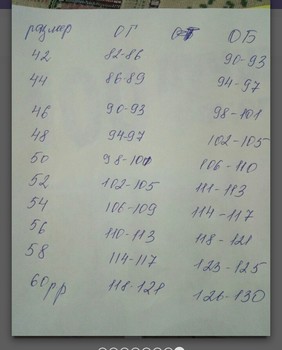 размер ОГ ОБ
42 82-86 90-93
44 86-89 94-97
46 90-93 98-101
48 94-97 102-105
50 98-101 106-110
52 102-105 111-113
54 106-109 114-117
56 110-113 118-121
58 114-117 123-125
60рр 118-121 126-130